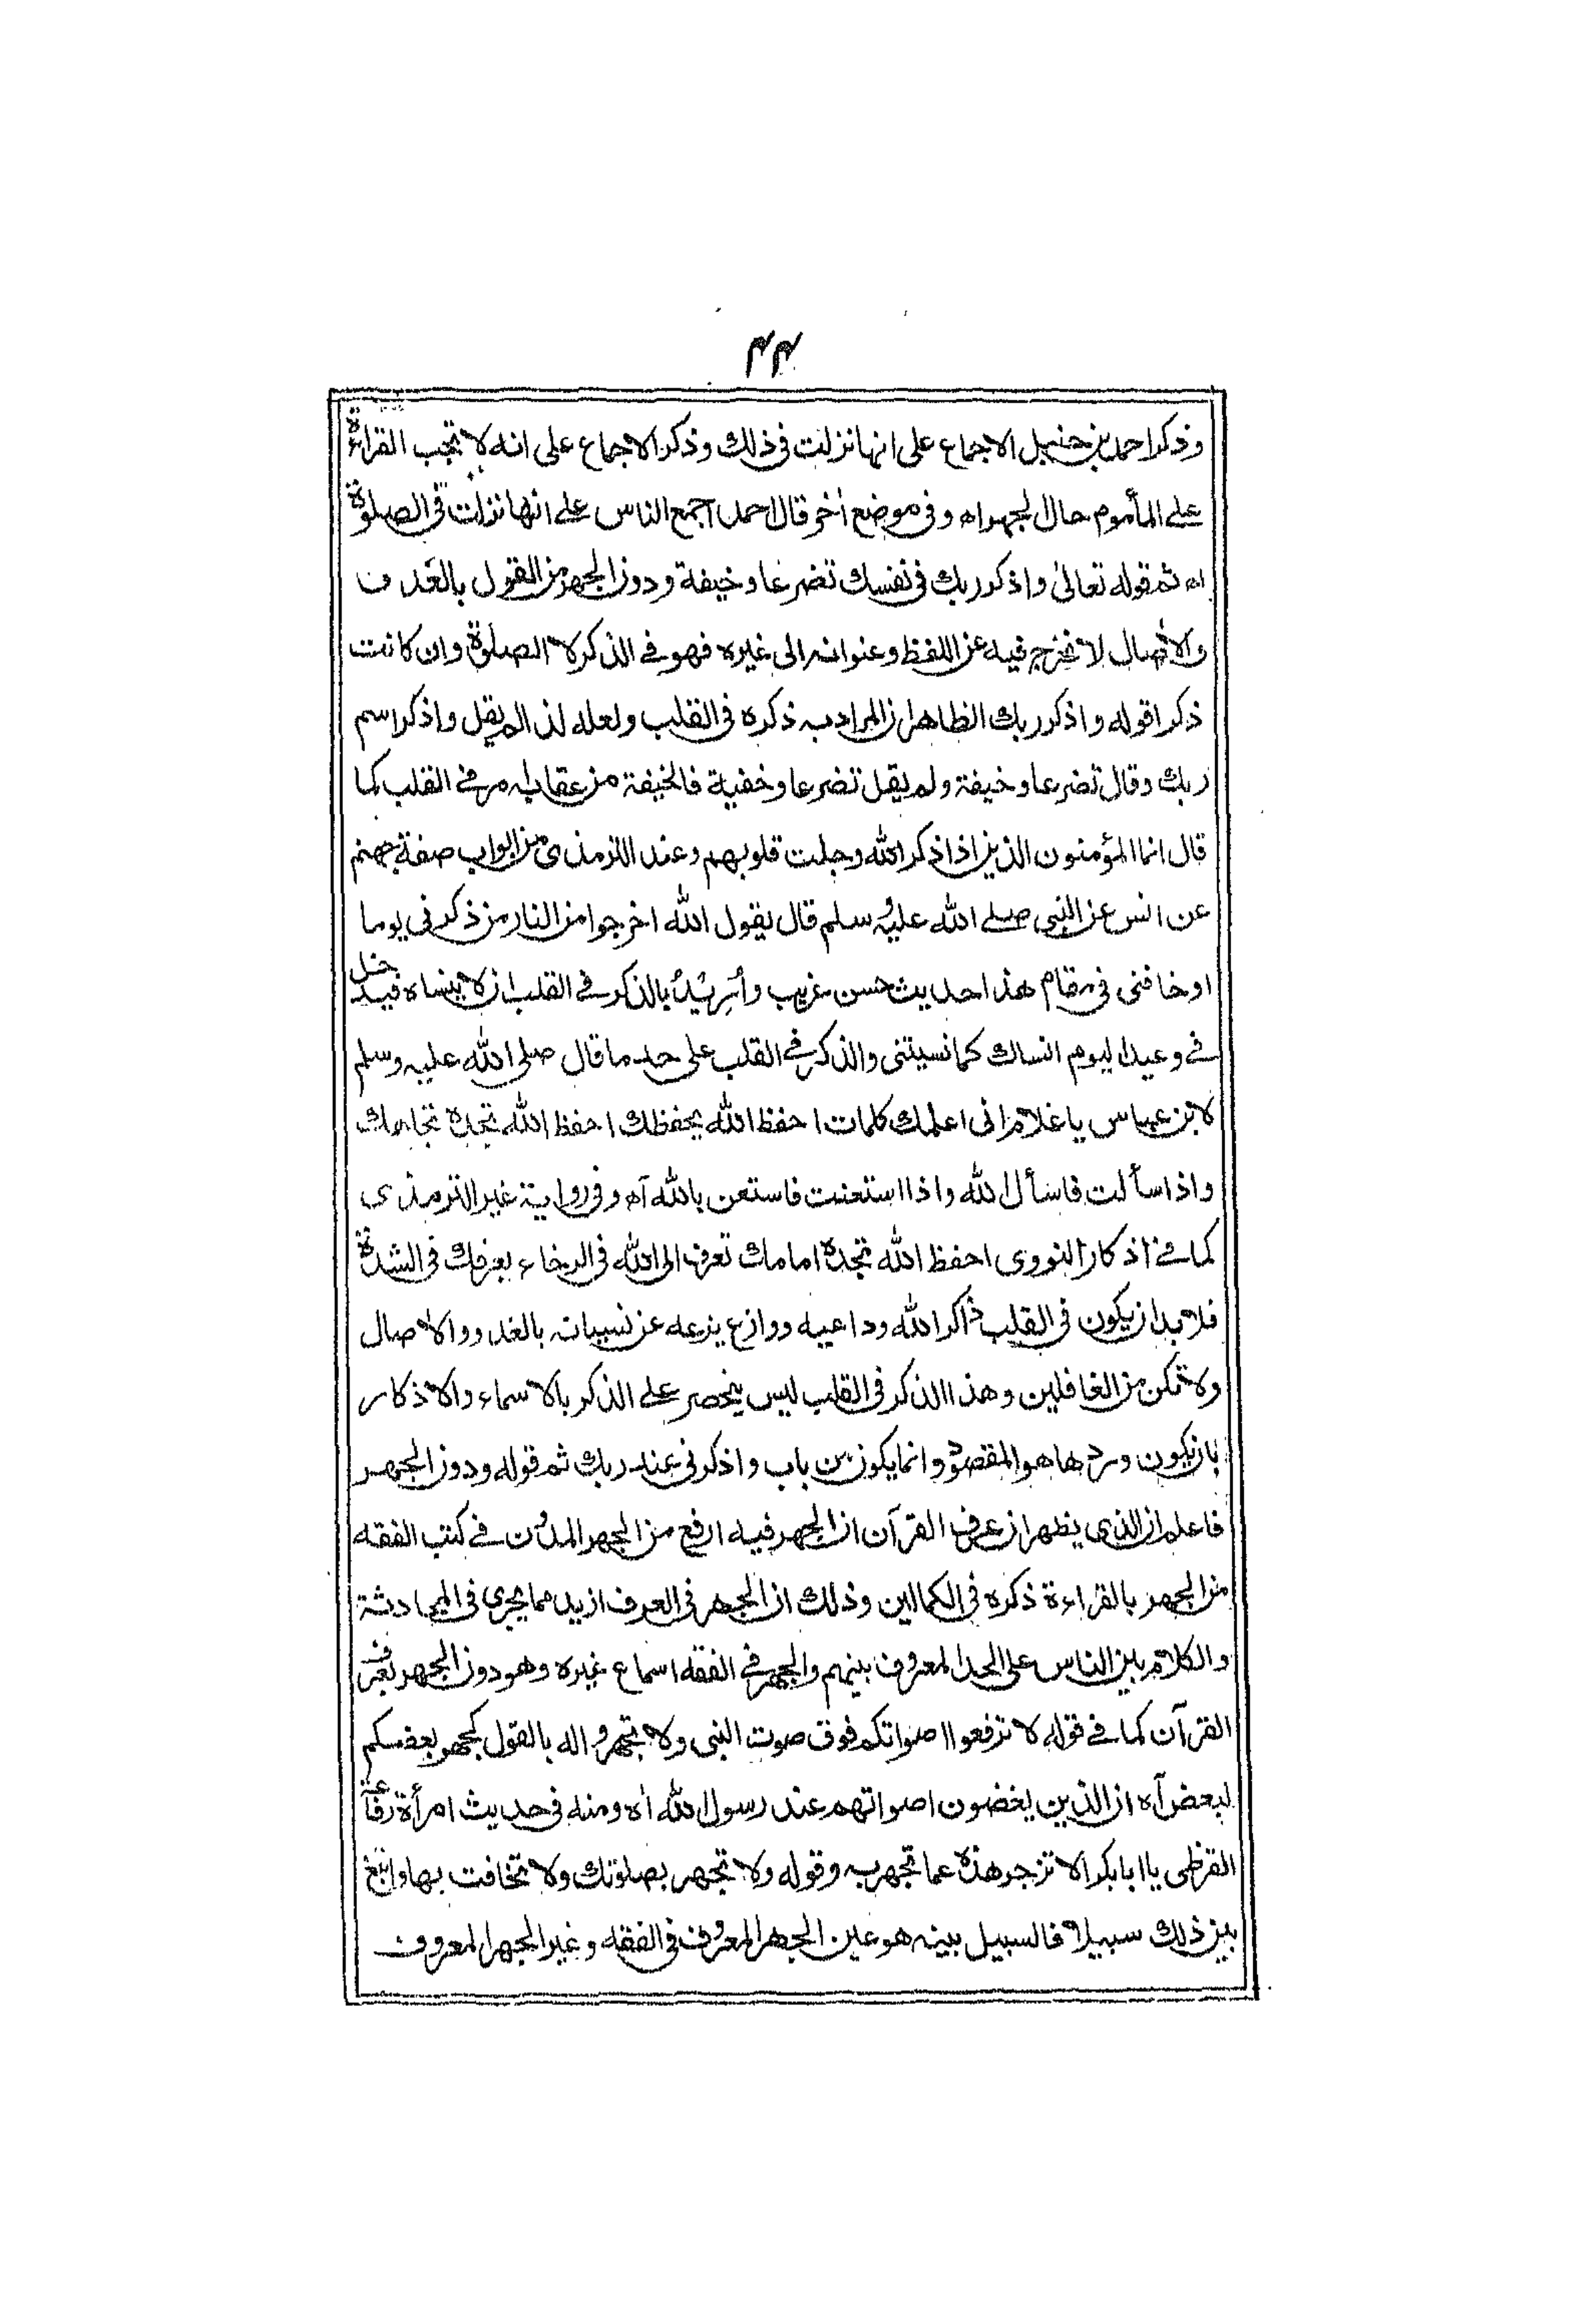 ۴۴
وذكر احمد بن حنبل الاجماع على انها نزلت فى ذلك وذكر الاجماع على انه لا تجب القراءة
على المأموم حال الجهر اه وفى موضع اٰخر قال احمد اجمع الناس على انها نزلت فى الصلوة
اه ثم قوله تعالىٰ واذكر ربك فى نفسك تضرعا وخيفة ودون الجهر من القول بالغدو
والاٰصال لا نخرج فيه عن اللفظ وعنوانه الى غيره فهو فى الذكر لا الصلوة وان كانت
ذكرا قوله واذكر ربك الظاهر ان المراد به ذكره فى القلب ولعله لذا لم يقل واذكر اسم
ربك وقال تضرعا وخيفة ولم يقل تضرعا وخفية فالخيفة من عقابه مر فى القلب كما
قال انما المؤمنون الذين اذا ذكر الله وجلت قلوبهم وعند الترمذى من ابواب صفة جهنم
عن انس عن النبى صلے الله عليه وسلم قال يقول الله اخرجوا من النار من ذكرنى يوما
او خافنى فى مقام هذا حديث حسن غريب واُرِيْدُ بالذكر فى القلب ان لا ينساه فيدخل
فى وعيد اليوم انساك كما نسيتنى والذكر فى القلب على حد ما قال صلى الله عليه وسلم
لابن عباس يا غلام انى اعلمك كلمات احفظ الله يحفظك احفظ الله تجده تجاهك
واذا سألت فاسأل الله واذا استعنت فاستعن بالله اٰه وفى رواية غير الترمذى
كما فى اذكار النووى احفظ الله تجده امامك تعرف الى الله فى الرخاء يعرفك فى الشدة
فلا بد ان يكون فى القلب ذاكر الله وداعيه ووازع يزعه عن نسيانه بالغدو والاٰصال
ولا تكن من الغافلين وهذا الذكر فى القلب ليس ينحصر على الذكر بالاسماء والاذكار
بان يكون وردها هو المقصود وانما يكون من باب واذكرنى عند ربك ثم قوله ودون الجهر
فاعلم ان الذى يظهر ان عرف القرآن ان الجهر فيه ارفع من الجهر المدون فى كتب الفقه
من الجهر بالقراءة ذكره فى الكمالين وذلك ان الجهر فى العرف ازيد مما يجرى فى المحادثة
والكلام بين الناس على الحد المعروف بينهم والجهر فى الفقه اسماع غيره وهو دون الجهر بعرف
القرآن كما فى قوله لا ترفعوا اصواتكم فوق صوت النبى ولا تجهروا له بالقول كجهر بعضكم
لبعض آه ان الذين يغضون اصواتهم عند رسول الله اٰه ومنه فى حديث امرأة رفاعة
القرظى يا ابابكر الا تزجر هذه عما تجهر به وقوله ولا تجهر بصلوتك ولا تخافت بها وابتغ
بين ذلك سبيلا فالسبيل بينه هو عين الجهر المعروف فى الفقه وغير الجهر المعروف